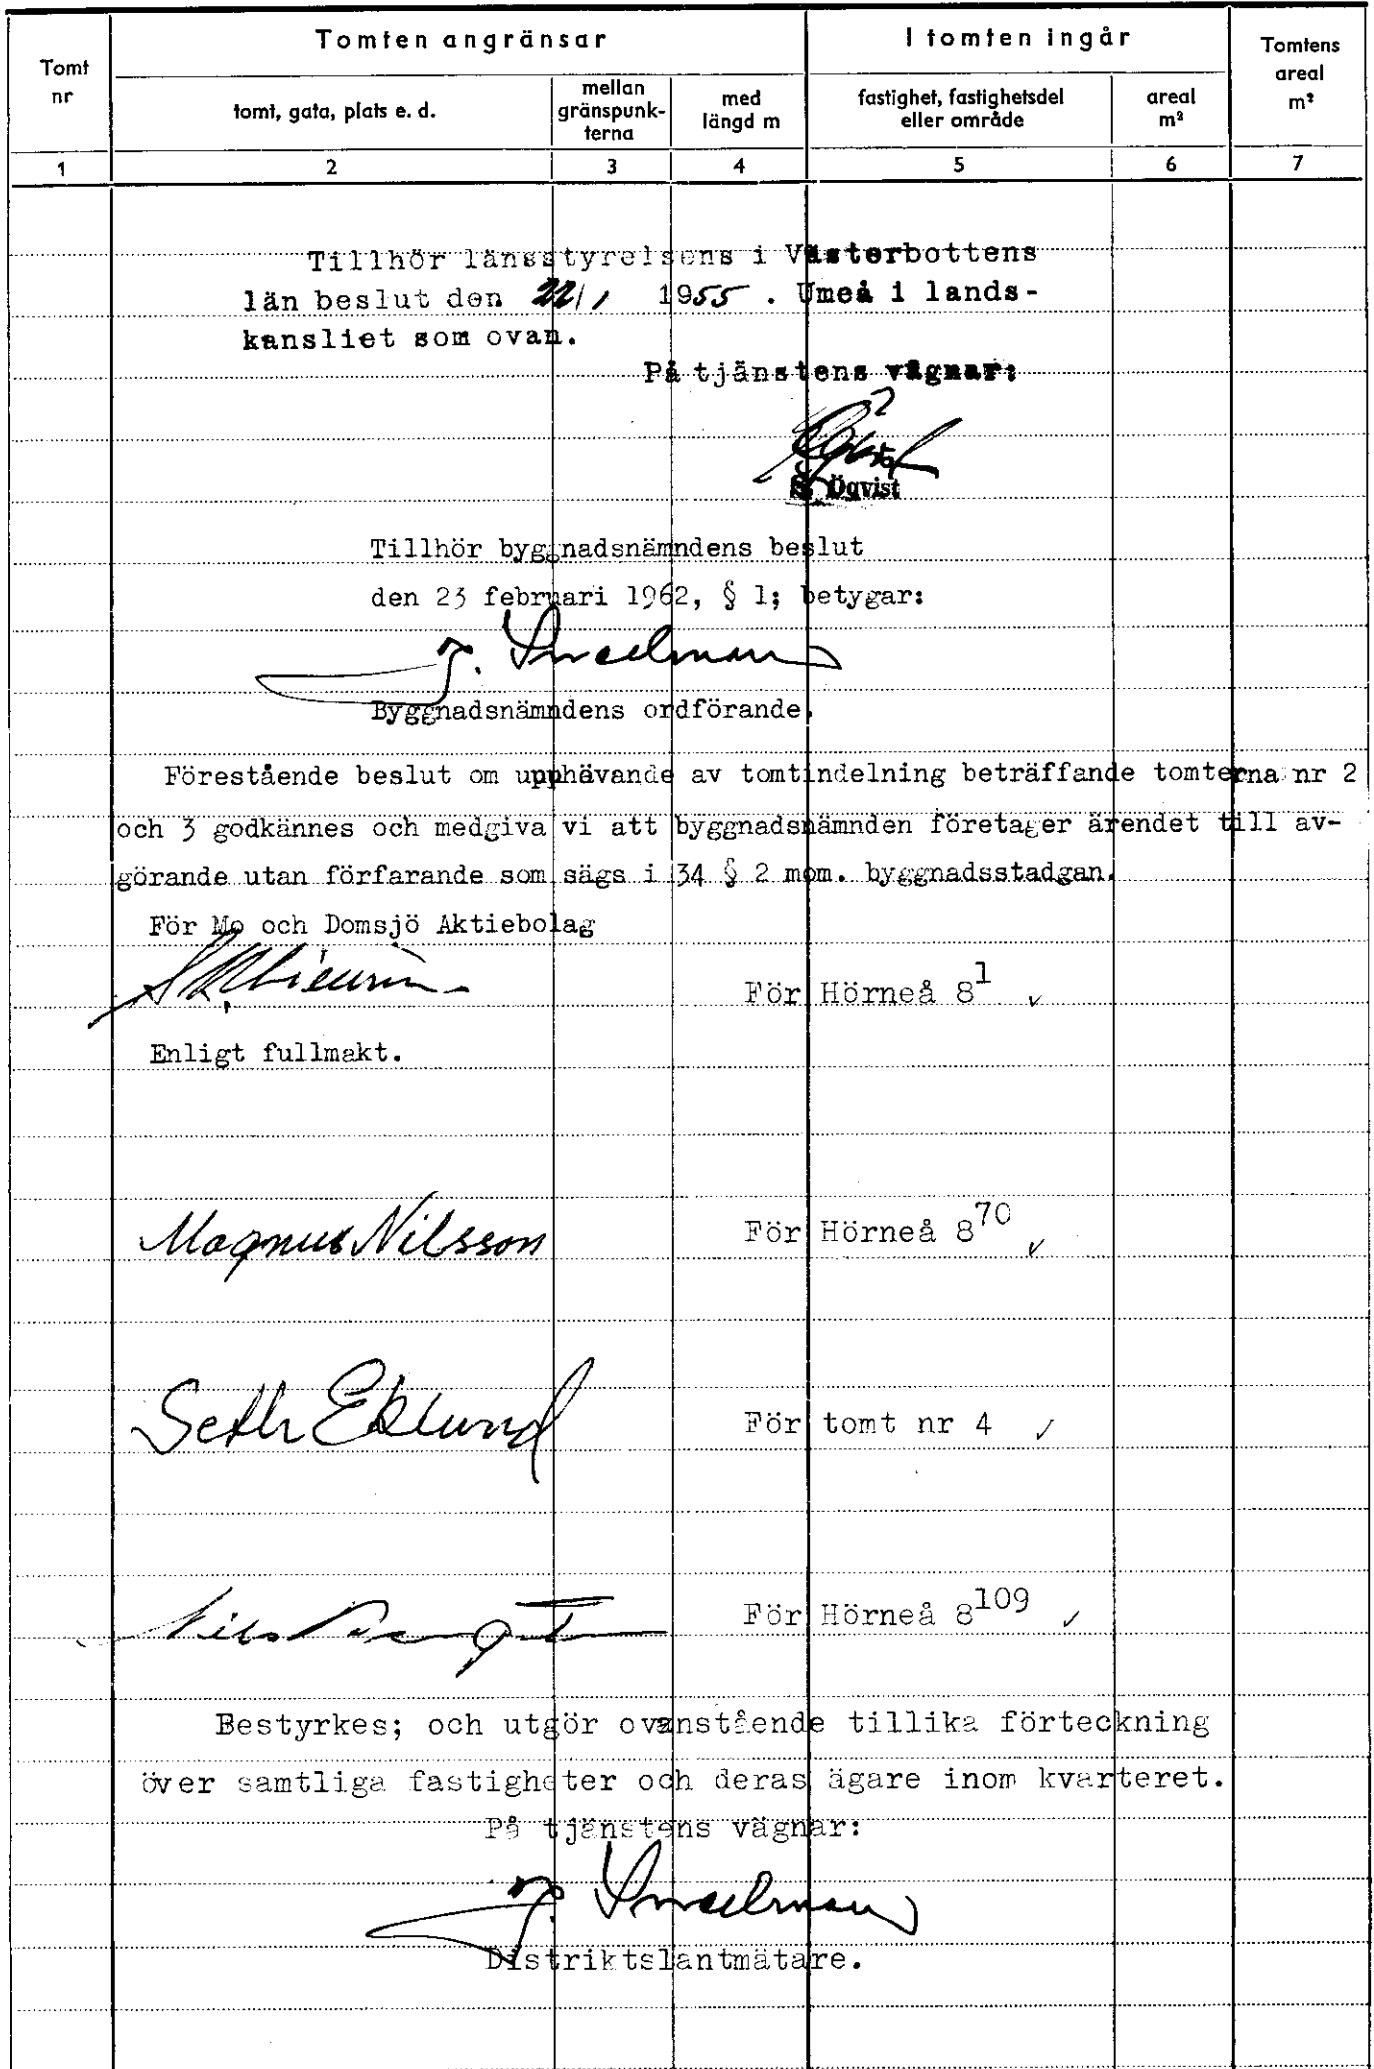 Tomt nr
Tomten angränsar
I tomten ingår
Tomtens areal m²
tomt, gata, plats e. d.
mellan gränspunk-terna
med längd m
fastighet, fastighetsdel eller område
areal m²
1 2 3 4 5 6 7
Tillhör länsstyrelsens i Västerbottens
län beslut den 22/1 1955. Umeå i lands-
kansliet som ovan.
På tjänstens vägnar:
S. Öqvist
Tillhör byggnadsnämndens beslut
den 23 februari 1962, § 1; betygar:
Byggnadsnämndens ordförande.
Förestående beslut om upphävande av tomtindelning beträffande tomterna nr 2
och 3 godkännes och medgiva vi att byggnadsnämnden företager ärendet till av-
görande utan förfarande som sägs i 34 § 2 mom. byggnadsstadgan.
För Mo och Domsjö Aktiebolag
För Hörneå 8¹ ✓
Enligt fullmakt.
Magnus Nilsson För Hörneå 8⁷⁰ ✓
Seth Eklund För tomt nr 4 ✓
Nils För Hörneå 8¹⁰⁹ ✓
Bestyrkes; och utgör ovanstående tillika förteckning
över samtliga fastigheter och deras ägare inom kvarteret.
På tjänstens vägnar:
Distriktslantmätare.